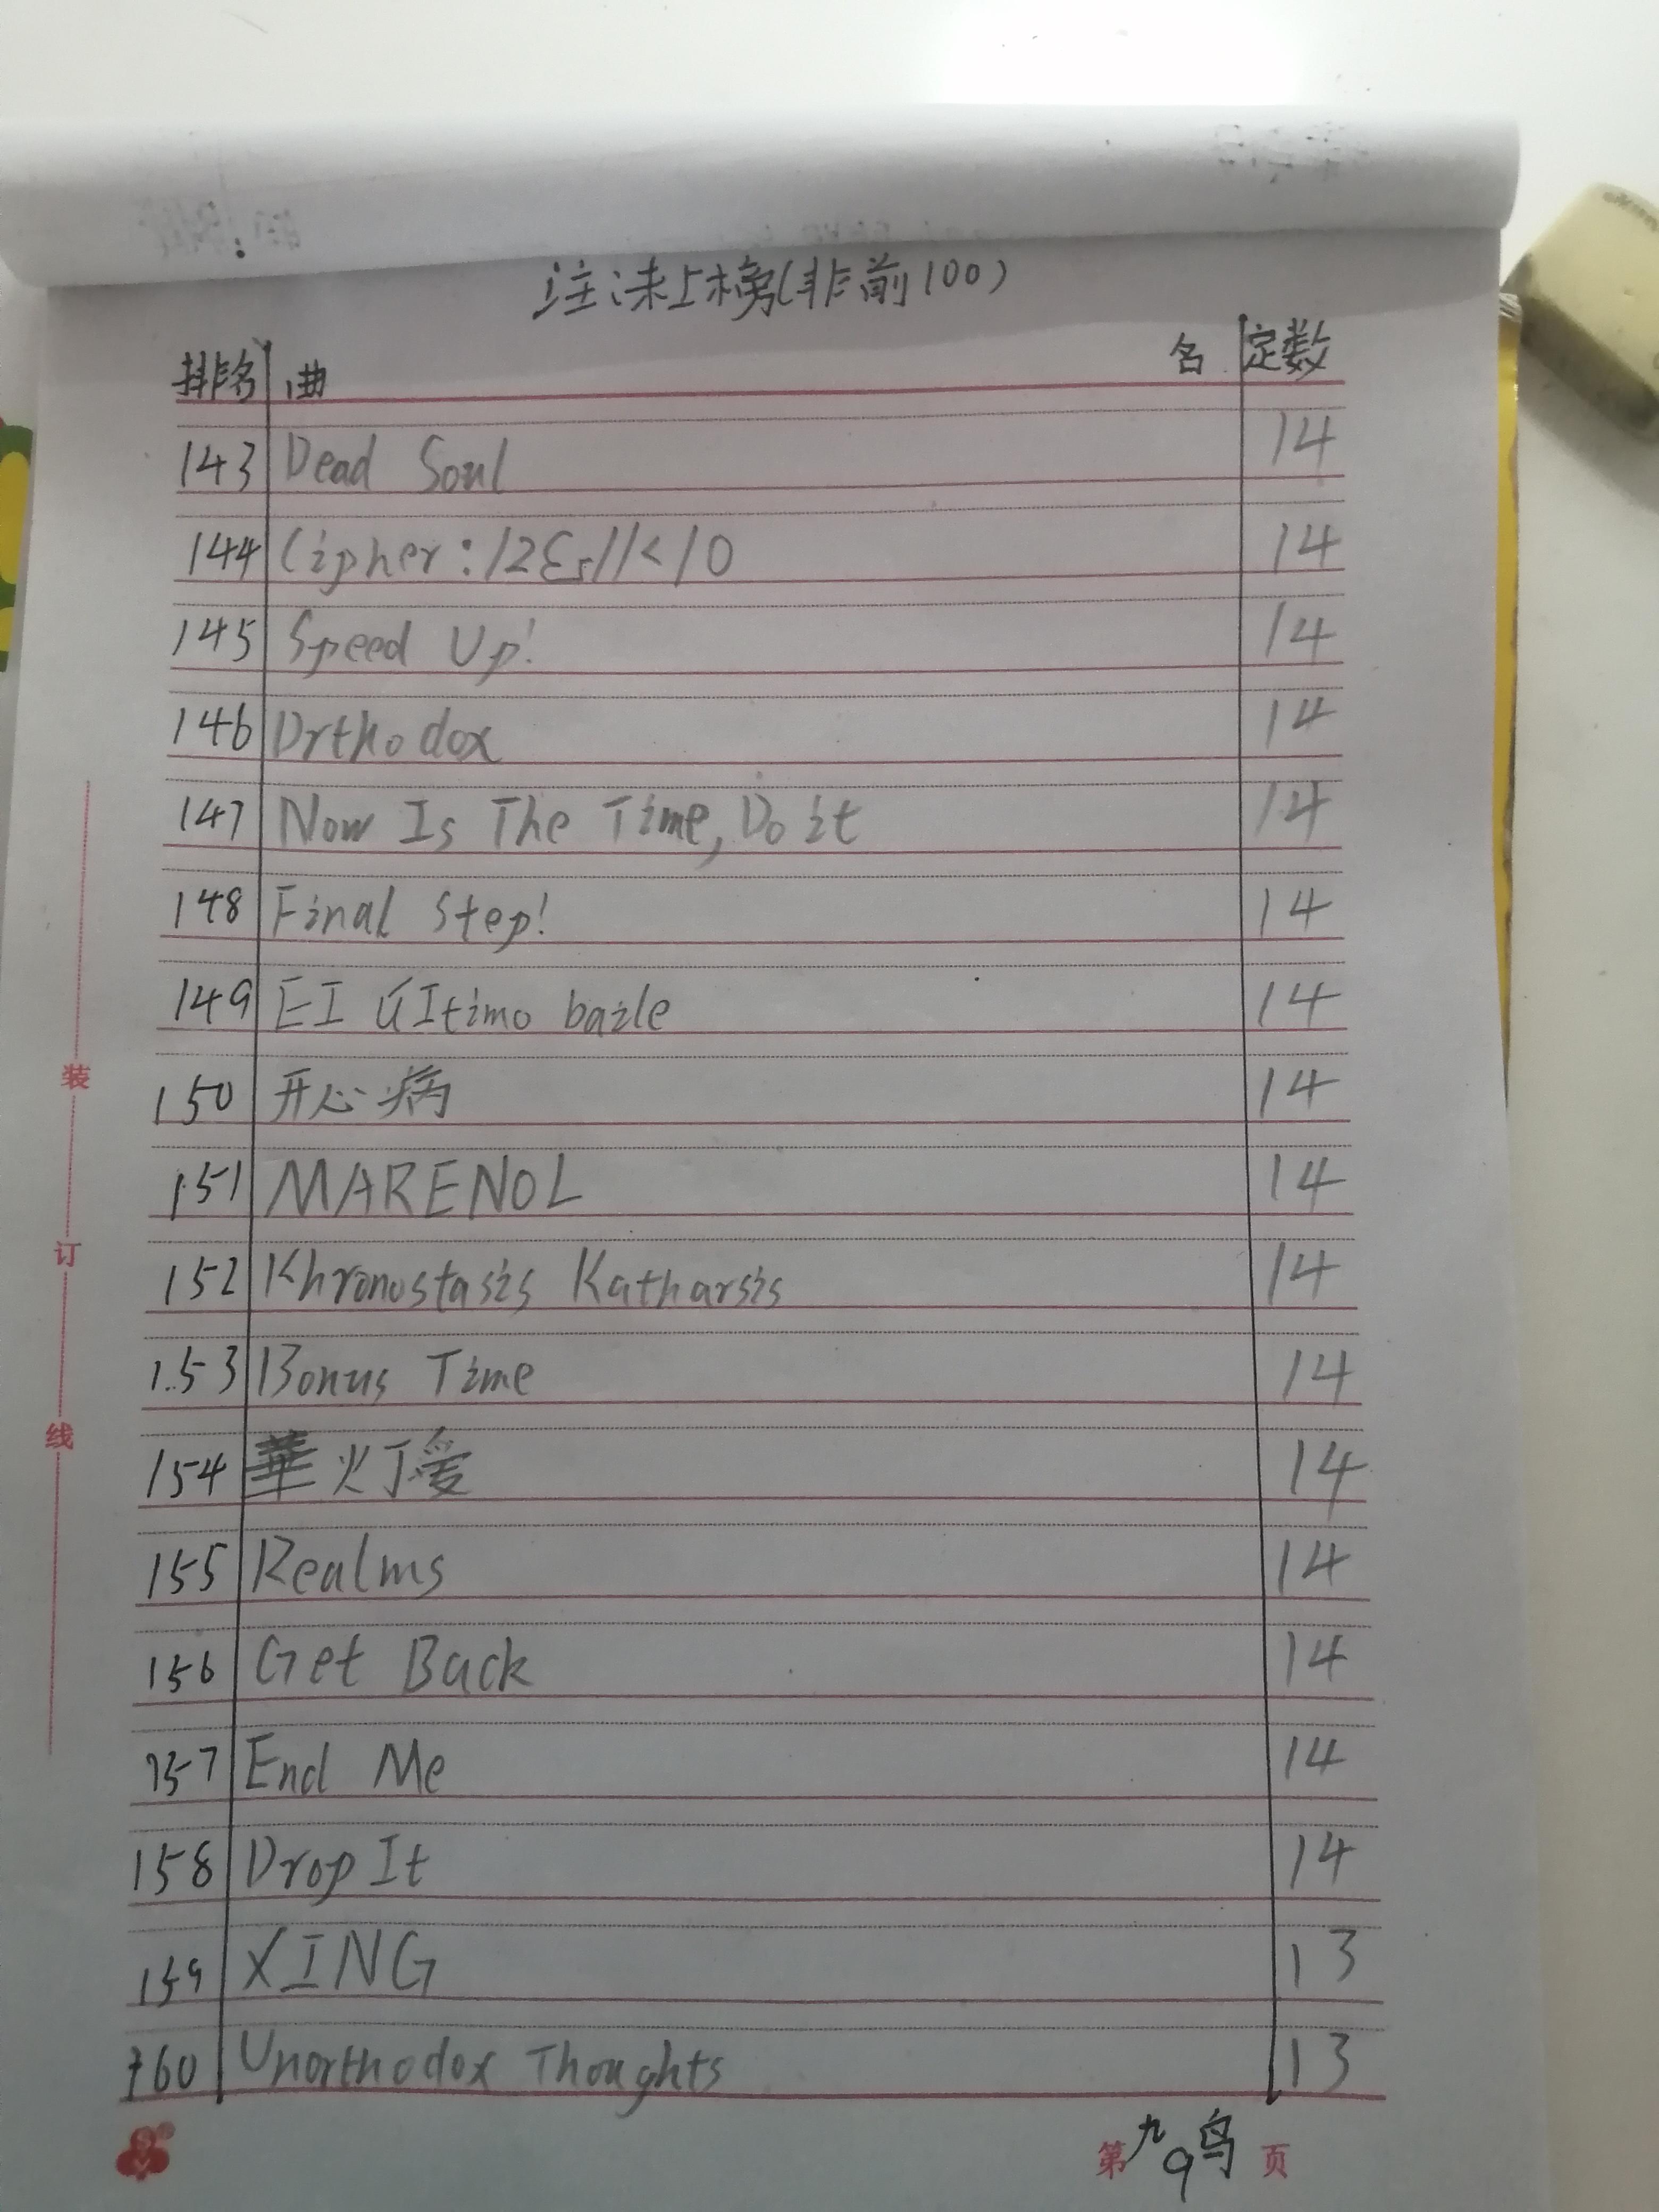 注:未上榜(非前100)
排名 曲 名 定数
143 Dead Soul 14
144 Cipher:/2Es//</0 14
145 Speed Up! 14
146 Orthodox 14
147 Now Is The Time, Do it 14
148 Final Step! 14
149 EI úItimo baile 14
150 开心病 14
151 MARENOL 14
152 Khronostasis Katharsis 14
153 Bonus Time 14
154 華灯爱 14
155 Realms 14
156 Get Back 14
157 End Me 14
158 Drop It 14
159 XING 13
160 Unorthodox Thoughts 13
装
订
线
第九9鸟页